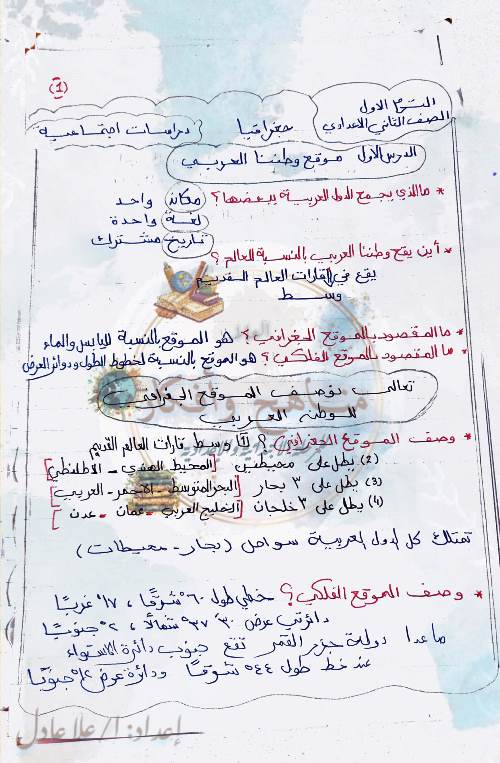 (1)
الترم الاول
الصف الثاني الاعدادي
جغرافيا
دراسات اجتماعية
الدرس الاول موقع وطننا العربي
* ما الذي يجمع الدول العربية ببعضها؟ مكان واحد
لغة واحدة
تاريخ مشترك
* أين يقع وطننا العربي بالنسبة للعالم؟
يقع في قارات العالم القديم
وسط
* ما المقصود بالموقع الجغرافي؟ هو الموقع بالنسبة لليابس والماء
* ما المقصود بالموقع الفلكي؟ هو الموقع بالنسبة لخطوط الطول ودوائر العرض
تعالى نوصف الموقع الجغرافي
للوطن العربي
* وصف الموقع الجغرافي؟ (1) وسط قارات العالم القديم
(2) يطل على محيطين [المحيط الهندي - الاطلنطي]
(3) يطل على ٣ بحار [البحر المتوسط - الاحمر - العربي]
(4) يطل على ٣ خلجان [الخليج العربي - عمان - عدن]
تمتلك كل الدول العربية سواحل (بحار - محيطات)
* وصف الموقع الفلكي؟ خطي طول ٦٠° شرقًا، ١٧° غربًا
دائرتي عرض ٣٠ ٣٧° شمالًا، ٢° جنوبًا
ماعدا دولة جزر القمر تقع جنوب دائرة الاستواء
عند خط طول ٤٤° شرقًا ودائرة عرض ١٢° جنوبًا
إعداد: أ/علا عادل